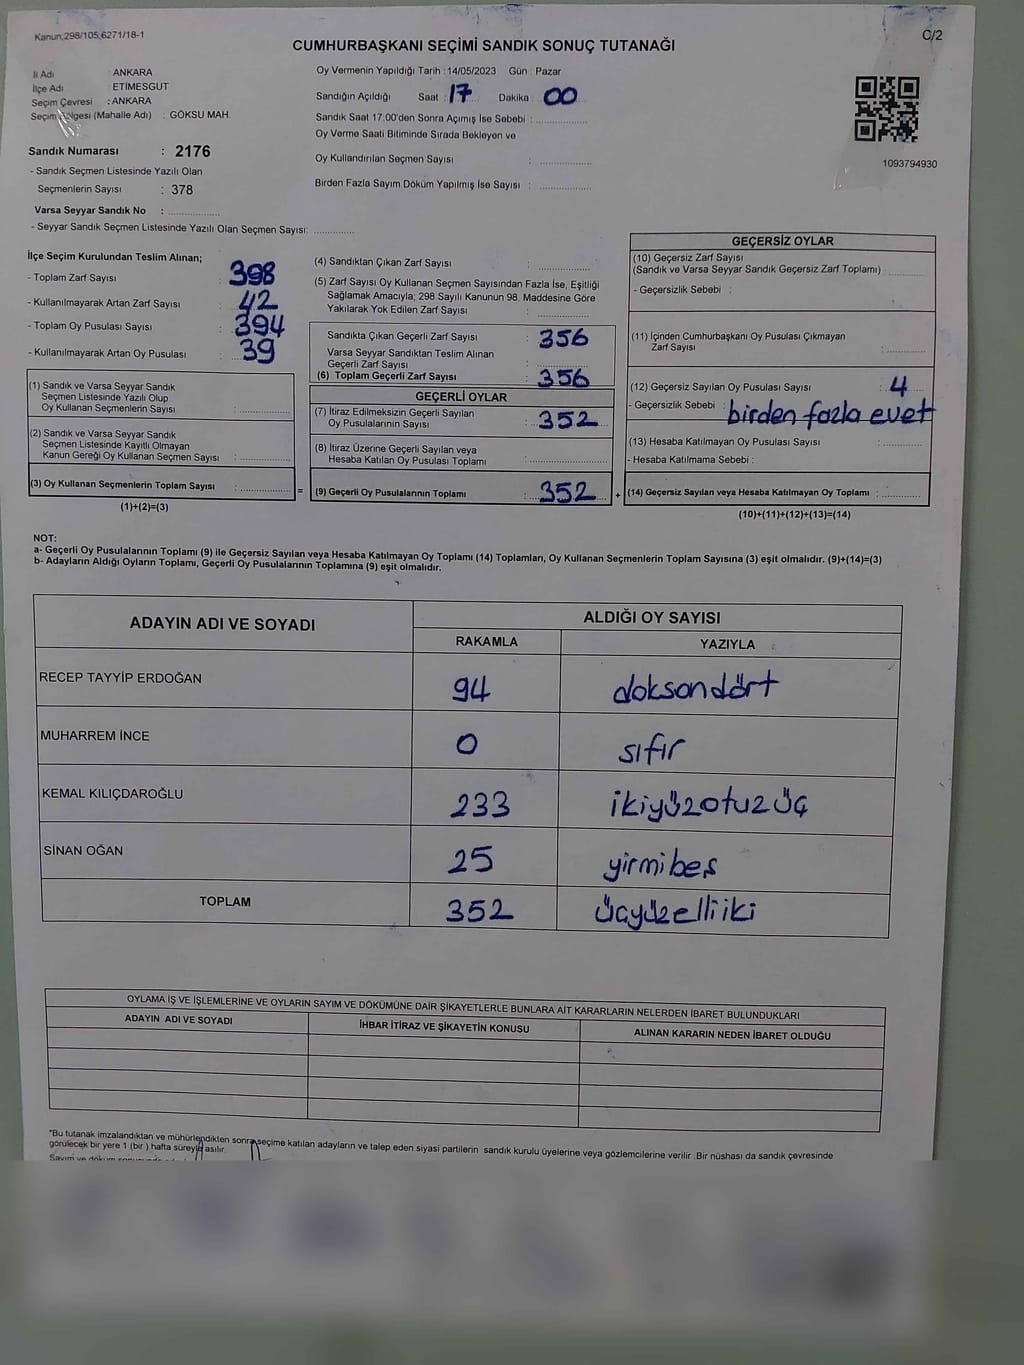 Kanun,298/105,6271/18-1
C/2
CUMHURBAŞKANI SEÇİMİ SANDIK SONUÇ TUTANAĞI
İl Adı ANKARA
İlçe Adı : ETİMESGUT
Seçim Çevresi : ANKARA
Seçim Bölgesi (Mahalle Adı) : GÖKSU MAH.
Sandık Numarası : 2176
- Sandık Seçmen Listesinde Yazılı Olan
Seçmenlerin Sayısı : 378
Varsa Seyyar Sandık No :
- Seyyar Sandık Seçmen Listesinde Yazılı Olan Seçmen Sayısı:
Oy Vermenin Yapıldığı Tarih : 14/05/2023 Gün : Pazar
Sandığın Açıldığı Saat : 17 Dakika : 00
Sandık Saat 17.00'den Sonra Açımış İse Sebebi :
Oy Verme Saati Bitiminde Sırada Bekleyen ve
Oy Kullandırılan Seçmen Sayısı :
Birden Fazla Sayım Döküm Yapılmış İse Sayısı :
1093794930
İlçe Seçim Kurulundan Teslim Alınan;
- Toplam Zarf Sayısı : 398
- Kullanılmayarak Artan Zarf Sayısı : 42
- Toplam Oy Pusulası Sayısı : 394
- Kullanılmayarak Artan Oy Pusulası : 39
(1) Sandık ve Varsa Seyyar Sandık
Seçmen Listesinde Yazılı Olup
Oy Kullanan Seçmenlerin Sayısı :
(2) Sandık ve Varsa Seyyar Sandık
Seçmen Listesinde Kayıtlı Olmayan
Kanun Gereği Oy Kullanan Seçmen Sayısı :
(3) Oy Kullanan Seçmenlerin Toplam Sayısı : =
(1)+(2)=(3)
(4) Sandıktan Çıkan Zarf Sayısı :
(5) Zarf Sayısı Oy Kullanan Seçmen Sayısından Fazla İse, Eşitliği
Sağlamak Amacıyla; 298 Sayılı Kanunun 98. Maddesine Göre
Yakılarak Yok Edilen Zarf Sayısı :
Sandıkta Çıkan Geçerli Zarf Sayısı : 356
Varsa Seyyar Sandıktan Teslim Alınan
Geçerli Zarf Sayısı :
(6) Toplam Geçerli Zarf Sayısı : 356
GEÇERLİ OYLAR
(7) İtiraz Edilmeksizin Geçerli Sayılan
Oy Pusulalarının Sayısı : 352
(8) İtiraz Üzerine Geçerli Sayılan veya
Hesaba Katılan Oy Pusulası Toplamı :
(9) Geçerli Oy Pusulalarının Toplamı : 352 +
GEÇERSİZ OYLAR
(10) Geçersiz Zarf Sayısı
(Sandık ve Varsa Seyyar Sandık Geçersiz Zarf Toplamı) :
- Geçersizlik Sebebi :
(11) İçinden Cumhurbaşkanı Oy Pusulası Çıkmayan
Zarf Sayısı :
(12) Geçersiz Sayılan Oy Pusulası Sayısı : 4
- Geçersizlik Sebebi : birden fazla evet
(13) Hesaba Katılmayan Oy Pusulası Sayısı :
- Hesaba Katılmama Sebebi :
(14) Geçersiz Sayılan veya Hesaba Katılmayan Oy Toplamı :
(10)+(11)+(12)+(13)=(14)
NOT:
a- Geçerli Oy Pusulalarının Toplamı (9) ile Geçersiz Sayılan veya Hesaba Katılmayan Oy Toplamı (14) Toplamları, Oy Kullanan Seçmenlerin Toplam Sayısına (3) eşit olmalıdır. (9)+(14)=(3)
b- Adayların Aldığı Oyların Toplamı, Geçerli Oy Pusulalarının Toplamına (9) eşit olmalıdır.
ADAYIN ADI VE SOYADI ALDIĞI OY SAYISI
RAKAMLA YAZIYLA
RECEP TAYYİP ERDOĞAN 94 doksandört
MUHARREM İNCE 0 sıfır
KEMAL KILIÇDAROĞLU 233 ikiyüzotuzüç
SİNAN OĞAN 25 yirmibeş
TOPLAM 352 üçyüzelliiki
OYLAMA İŞ VE İŞLEMLERİNE VE OYLARIN SAYIM VE DÖKÜMÜNE DAİR ŞİKAYETLERLE BUNLARA AİT KARARLARIN NELERDEN İBARET BULUNDUKLARI
ADAYIN ADI VE SOYADI İHBAR İTİRAZ VE ŞİKAYETİN KONUSU ALINAN KARARIN NEDEN İBARET OLDUĞU
*Bu tutanak imzalandıktan ve mühürlendikten sonra seçime katılan adayların ve talep eden siyasi partilerin sandık kurulu üyelerine veya gözlemcilerine verilir. Bir nüshası da sandık çevresinde
görülecek bir yere 1 (bir) hafta süreyle asılır.